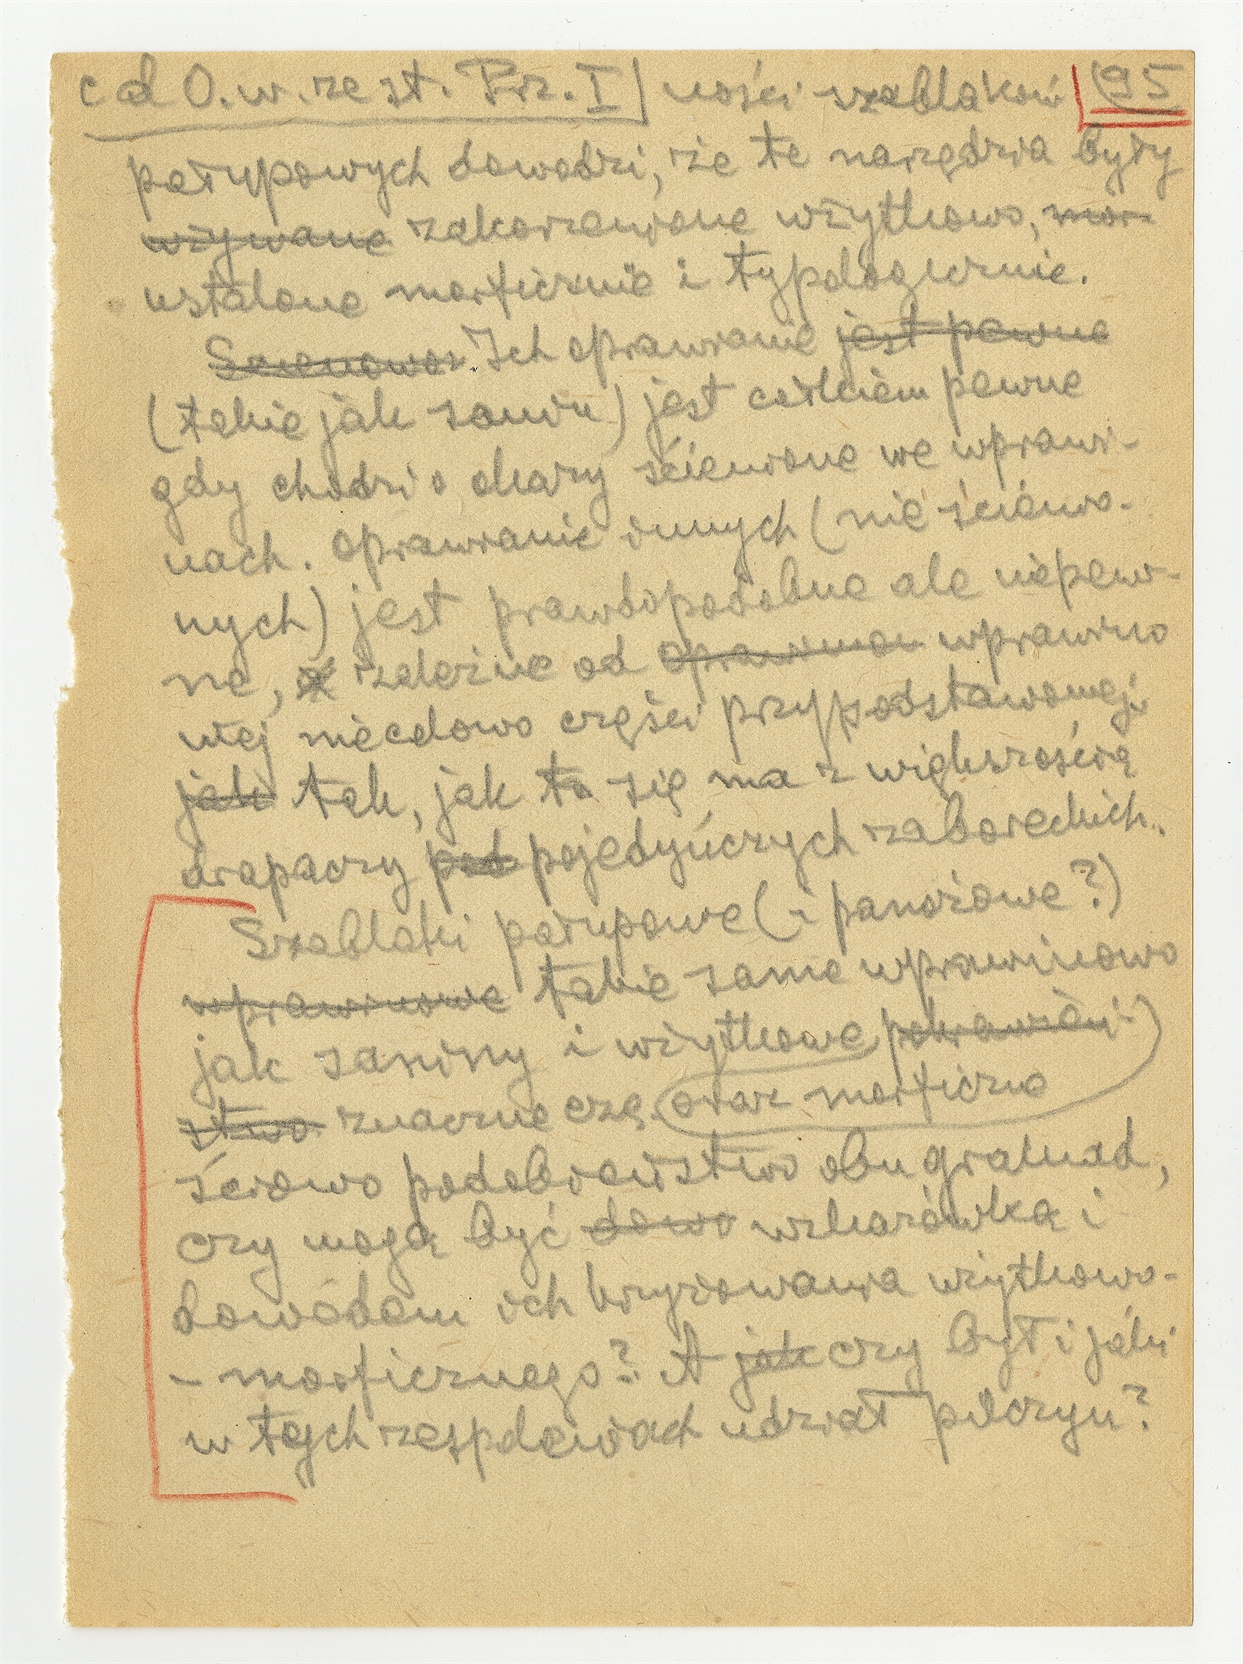 cd O.w. ze st. Prz. I | ności szablaków (95
półtypowych dowodzi, że te narzędzia były
używane zakorzenione użytkowo, mor-
ustalone morficznie i typologicznie.
Ich oprawianie jest pewne
(takie jak sanin) jest całkiem pewne
gdy chodzi o okazy ścienione we wprawi-
nach. Oprawianie innych (nie ścienio-
nych) jest prawdopodobne ale niepew-
ne, zależne od wprawino
wej niecelowo części przypodstawowej
jak tak, jak to się ma z większością
drapaczy pod pojedyńczych zaboreckich.
Szablaki (i panożowe?)
wprawinowe takie same wprawinowo
jak saniny i użytkowe pokrewień-
stwo znaczne czę oraz morficzno
ściowo podobieństwo obu gromad,
czy mogą być dowo wskazówką i
dowodem ich krzyżowania użytkowo-
- morficznego? A jak czy był i jaki
w tych zespoleniach udział pilczyn?